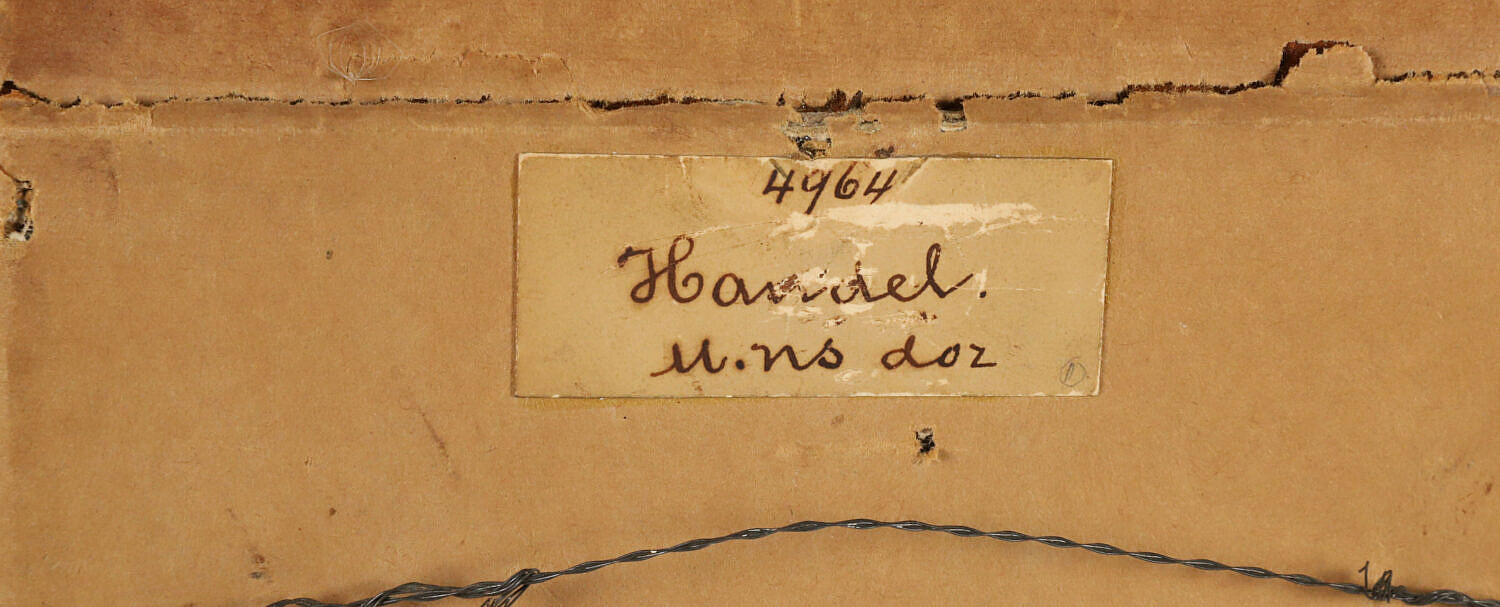 4964
Handel.
U.ns doz